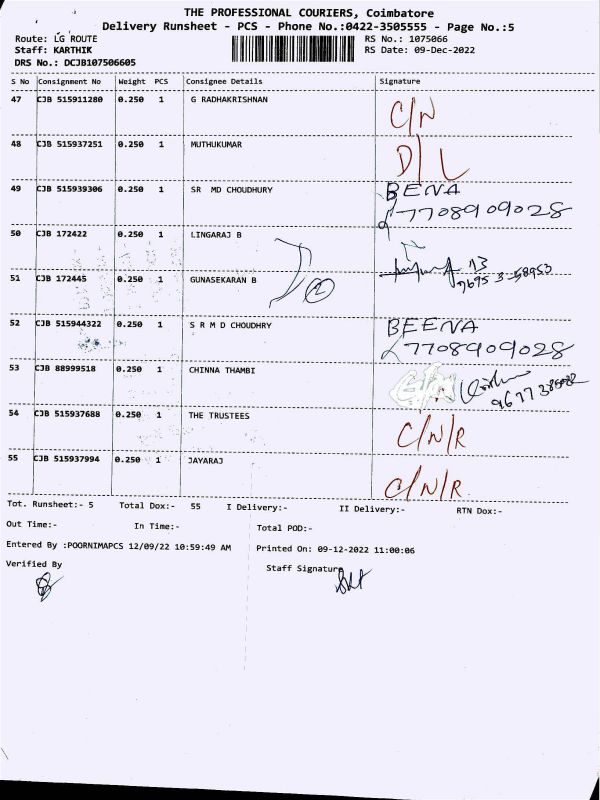 THE PROFESSIONAL COURIERS, Coimbatore
Delivery Runsheet - PCS - Phone No.:0422-3505555 - Page No.:5
Route: LG ROUTE RS No.: 1075066
Staff: KARTHIK RS Date: 09-Dec-2022
DRS No.: DCJB107506605
S No Consignment No Weight PCS Consignee Details Signature
47 CJB 515911280 0.250 1 G RADHAKRISHNAN C/N
48 CJB 515937251 0.250 1 MUTHUKUMAR D/L
49 CJB 515939306 0.250 1 SR MD CHOUDHURY BENA
7708909028
50 CJB 172422 0.250 1 LINGARAJ B
51 CJB 172445 0.250 1 GUNASEKARAN B 2
52 CJB 515944322 0.250 1 S R M D CHOUDHRY BEENA
7708909028
53 CJB 88999518 0.250 1 CHINNA THAMBI
54 CJB 515937688 0.250 1 THE TRUSTEES C/N/R
55 CJB 515937994 0.250 1 JAYARAJ C/N/R
Tot. Runsheet:- 5 Total Dox:- 55 I Delivery:- II Delivery:- RTN Dox:-
Out Time:- In Time:- Total POD:-
Entered By :POORNIMAPCS 12/09/22 10:59:49 AM Printed On: 09-12-2022 11:00:06
Verified By Staff Signature